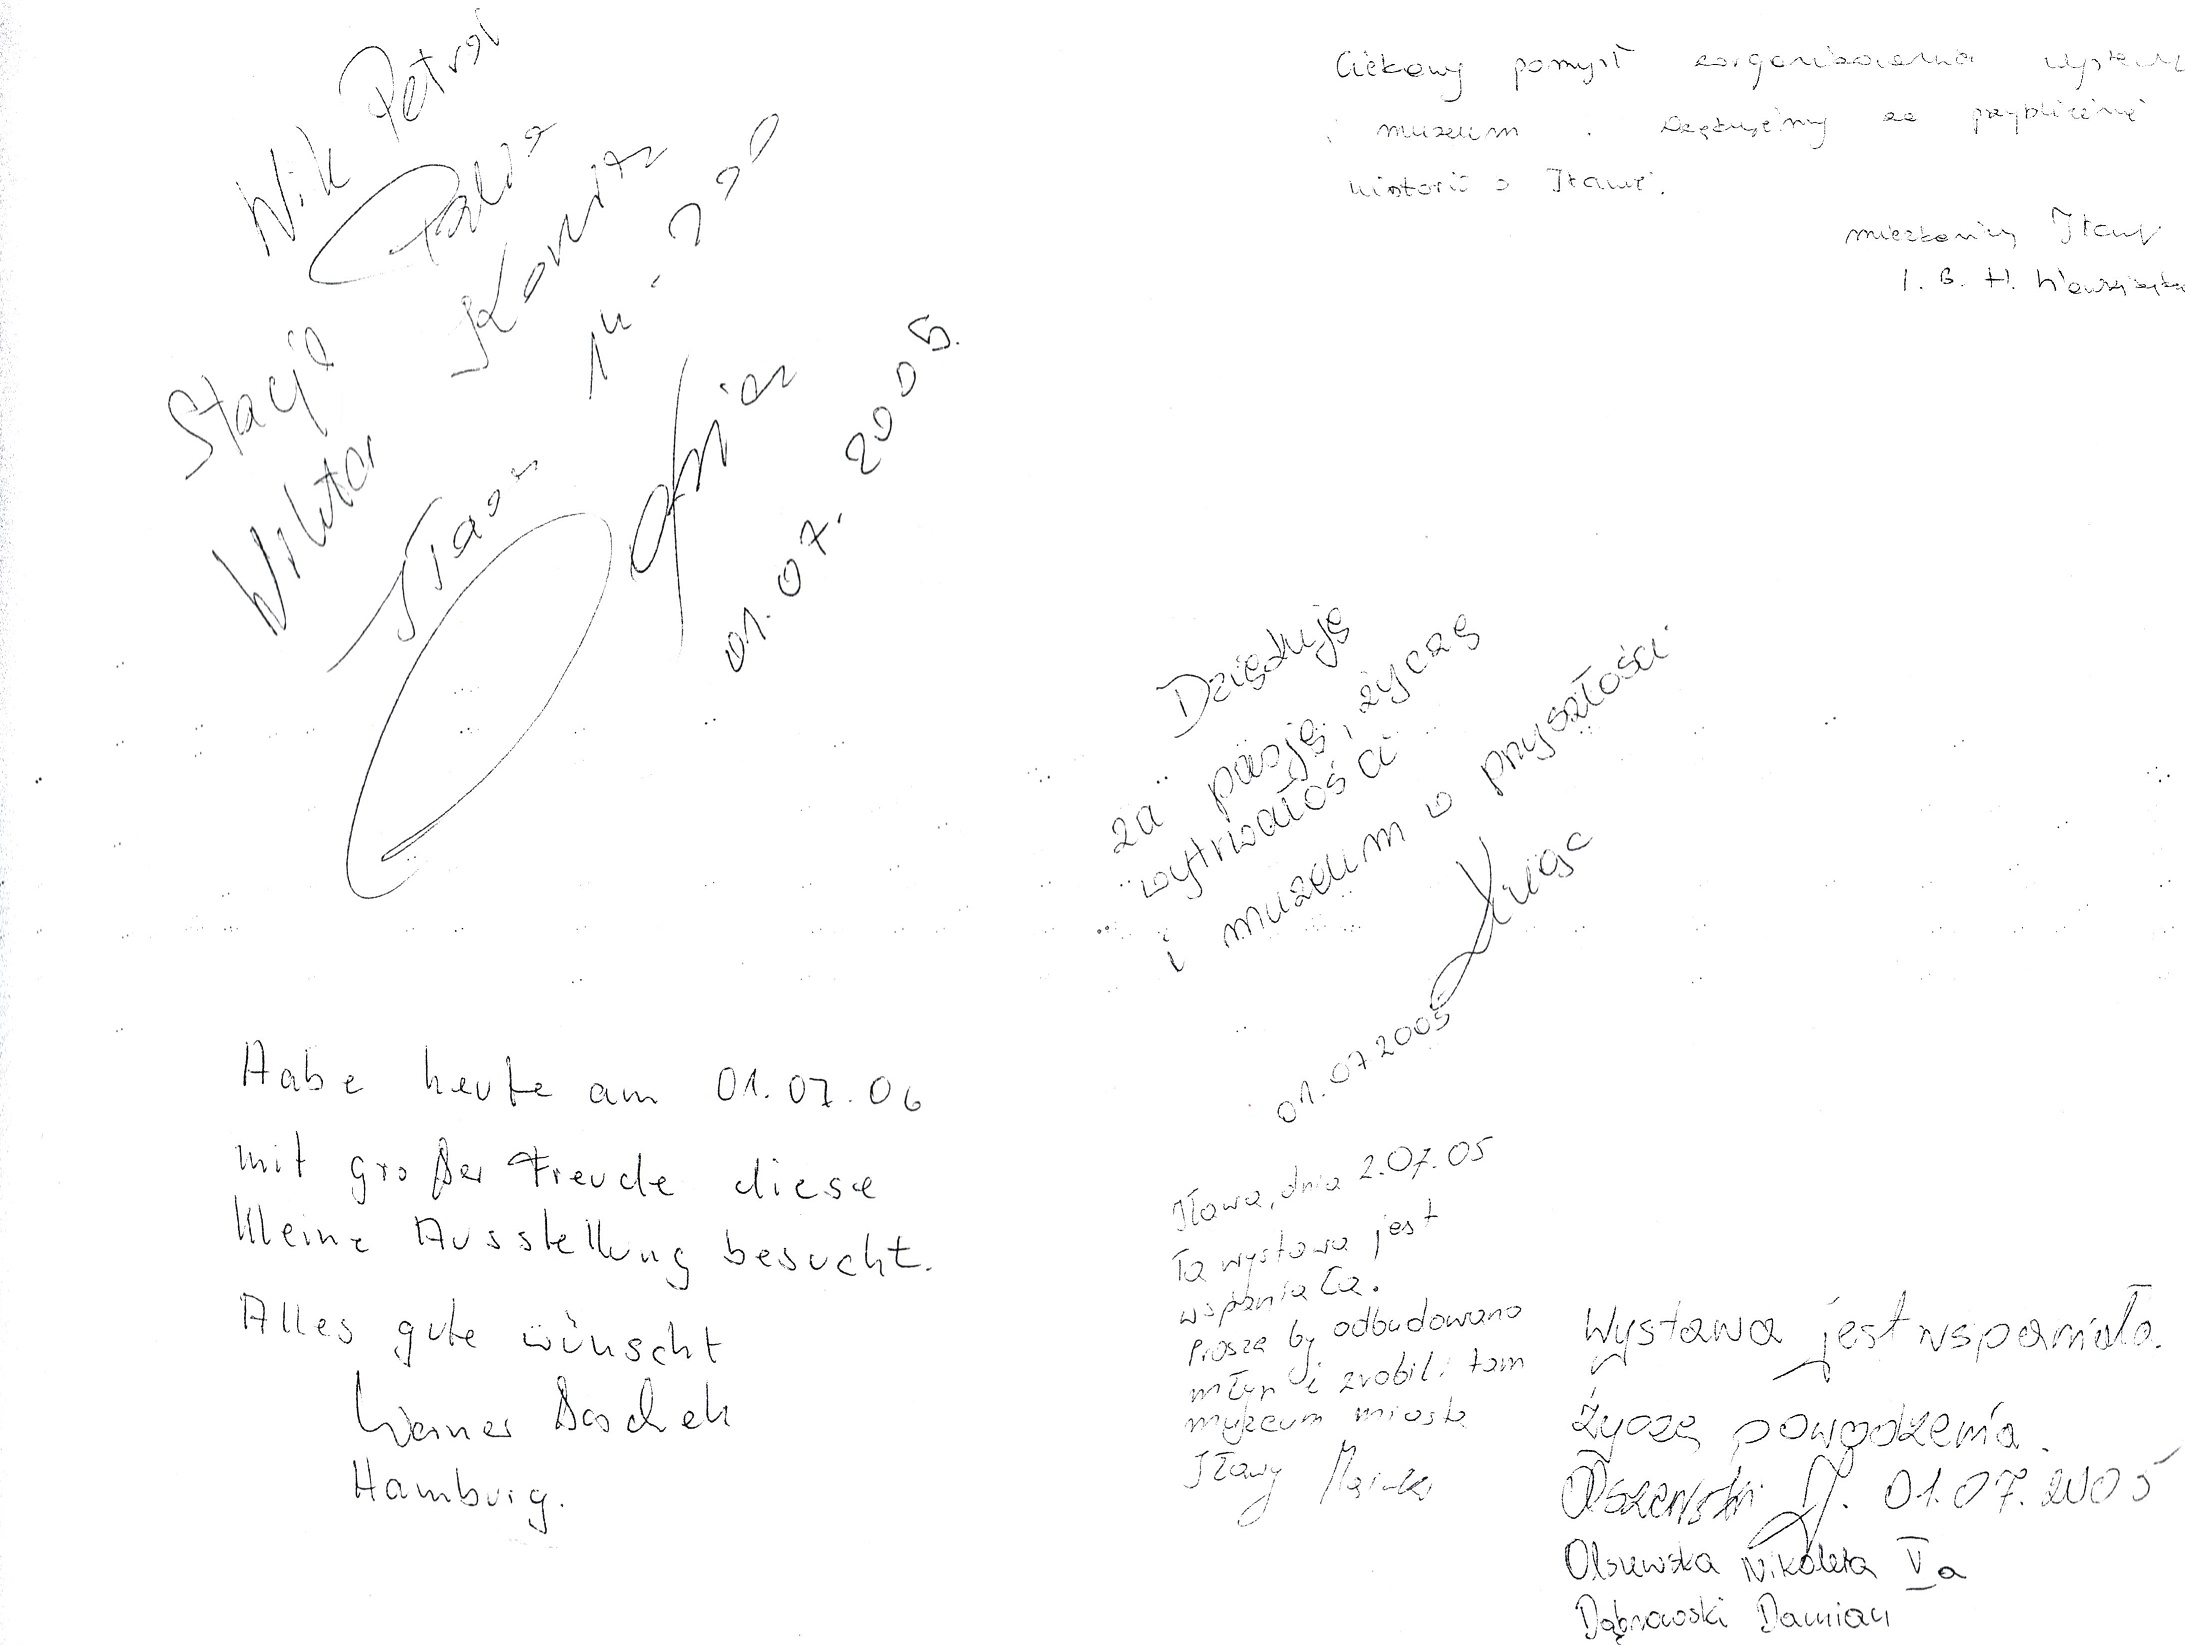 Wik Petrol
Stacja
Wiktor
14-200
01.07.2005.
Habe heute am 01.07.06
mit großer Freude diese
kleine Ausstellung besucht.
Alles gute wünscht
Werner
Hamburg.
Ciekawy pomysł zorganizowania
i muzeum. Dziękujemy za przybliżenie
historii o Iławie.
mieszkańcy Iławy
I. B. H.
Dziękuję
za pasję, życzę
wytrwałości
i muzeum w przyszłości
01.07 2005
Iława, dnia 2.07.05
Ta wystawa jest
wspaniała.
Proszę by odbudowano
młyn i zrobili tam
muzeum miasta
Iławy
Wystawa jest wspaniała.
Życzę powodzenia.
Olszewski J. 01.07.2005
Olszewska Nikoleta V a
Dąbrowski Damian